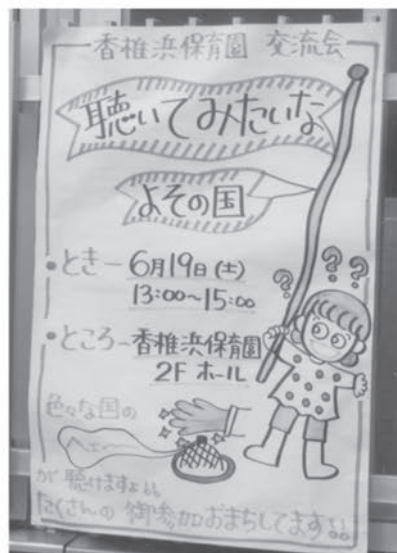 香椎浜保育園 交流会
聴いてみたいな
よその国
•とき－6月19日(土)
13:00〜15:00
•ところ－香椎浜保育園
2F ホール
? ? ?
色々な国の
へぇ〜
が聴けますよ!!
たくさんの御参加おまちしてます!!